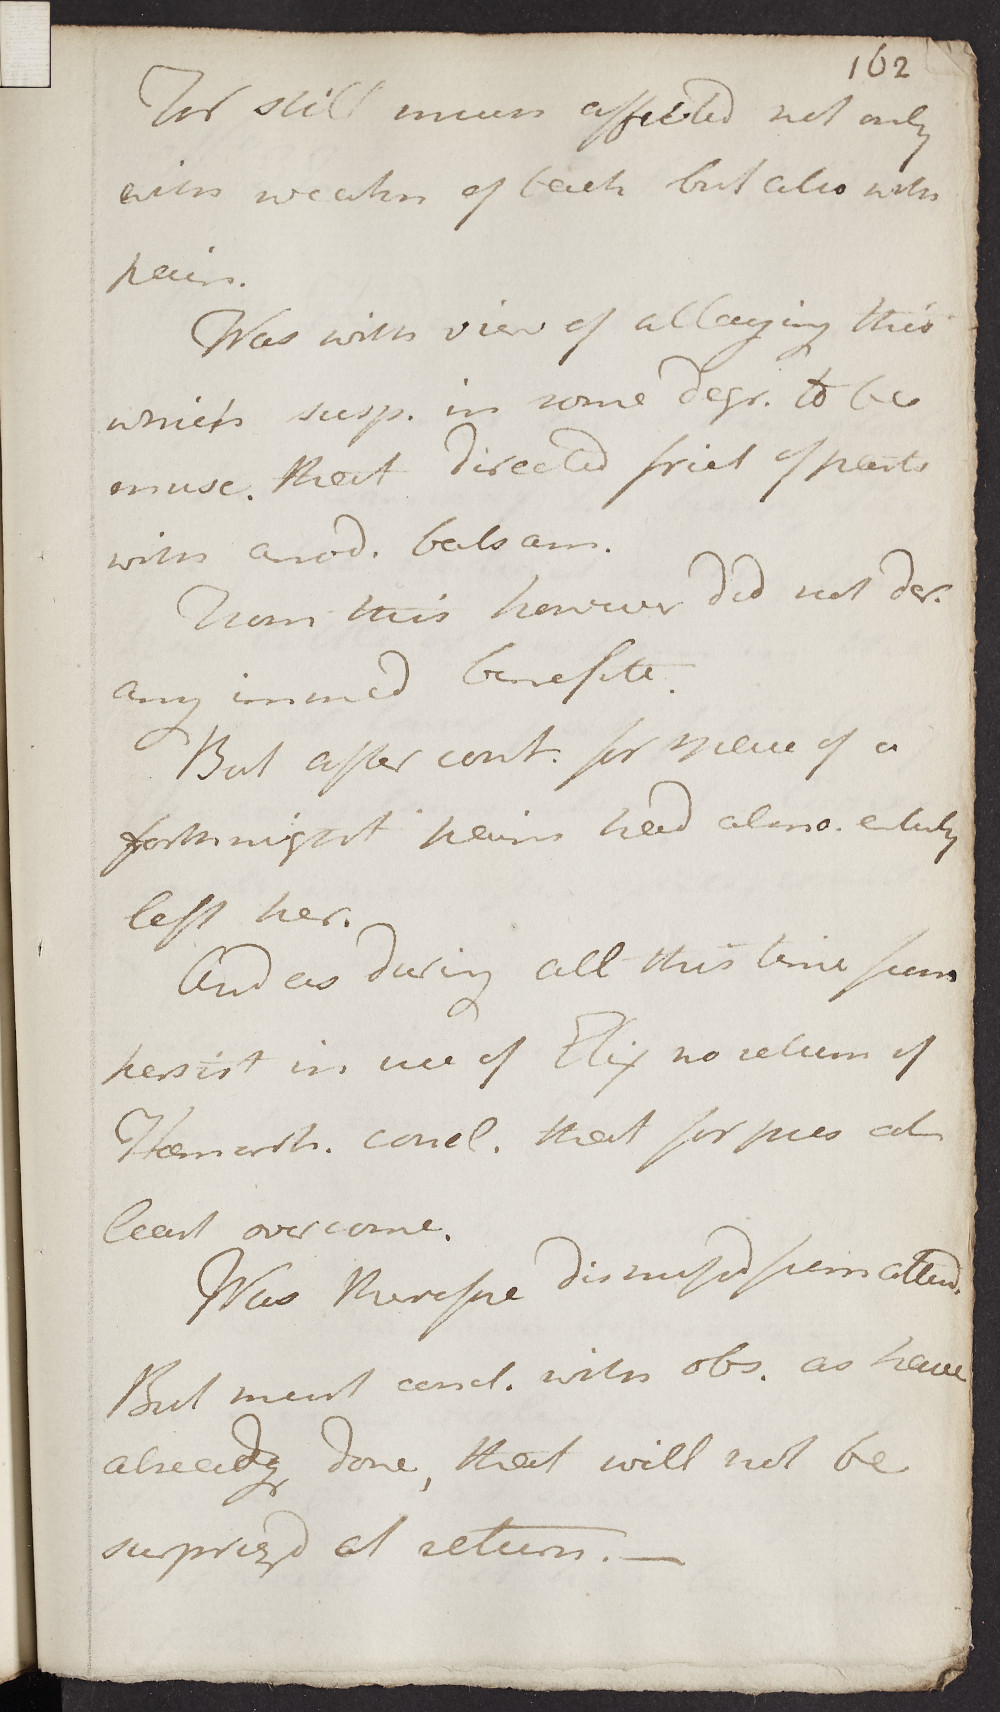 162
For still much affected not only
with weakn of back but also with
pain.
Was with view of allaying this
which susp. in some degr. to be
musc. that directed frict of parts
with anod. balsam.
From this however did not der.
any immed benefite.
But after cont. for space of a
forthnight pains had almo. entirely
left her.
And as during all this time from
persist in use of Elix no return of
Hæmorrh. concl. that for pres at
least overcome.
Was therefore dismissd from attend.
But must concl. with obs. as have
already done, that will not be
surprizd at return. —